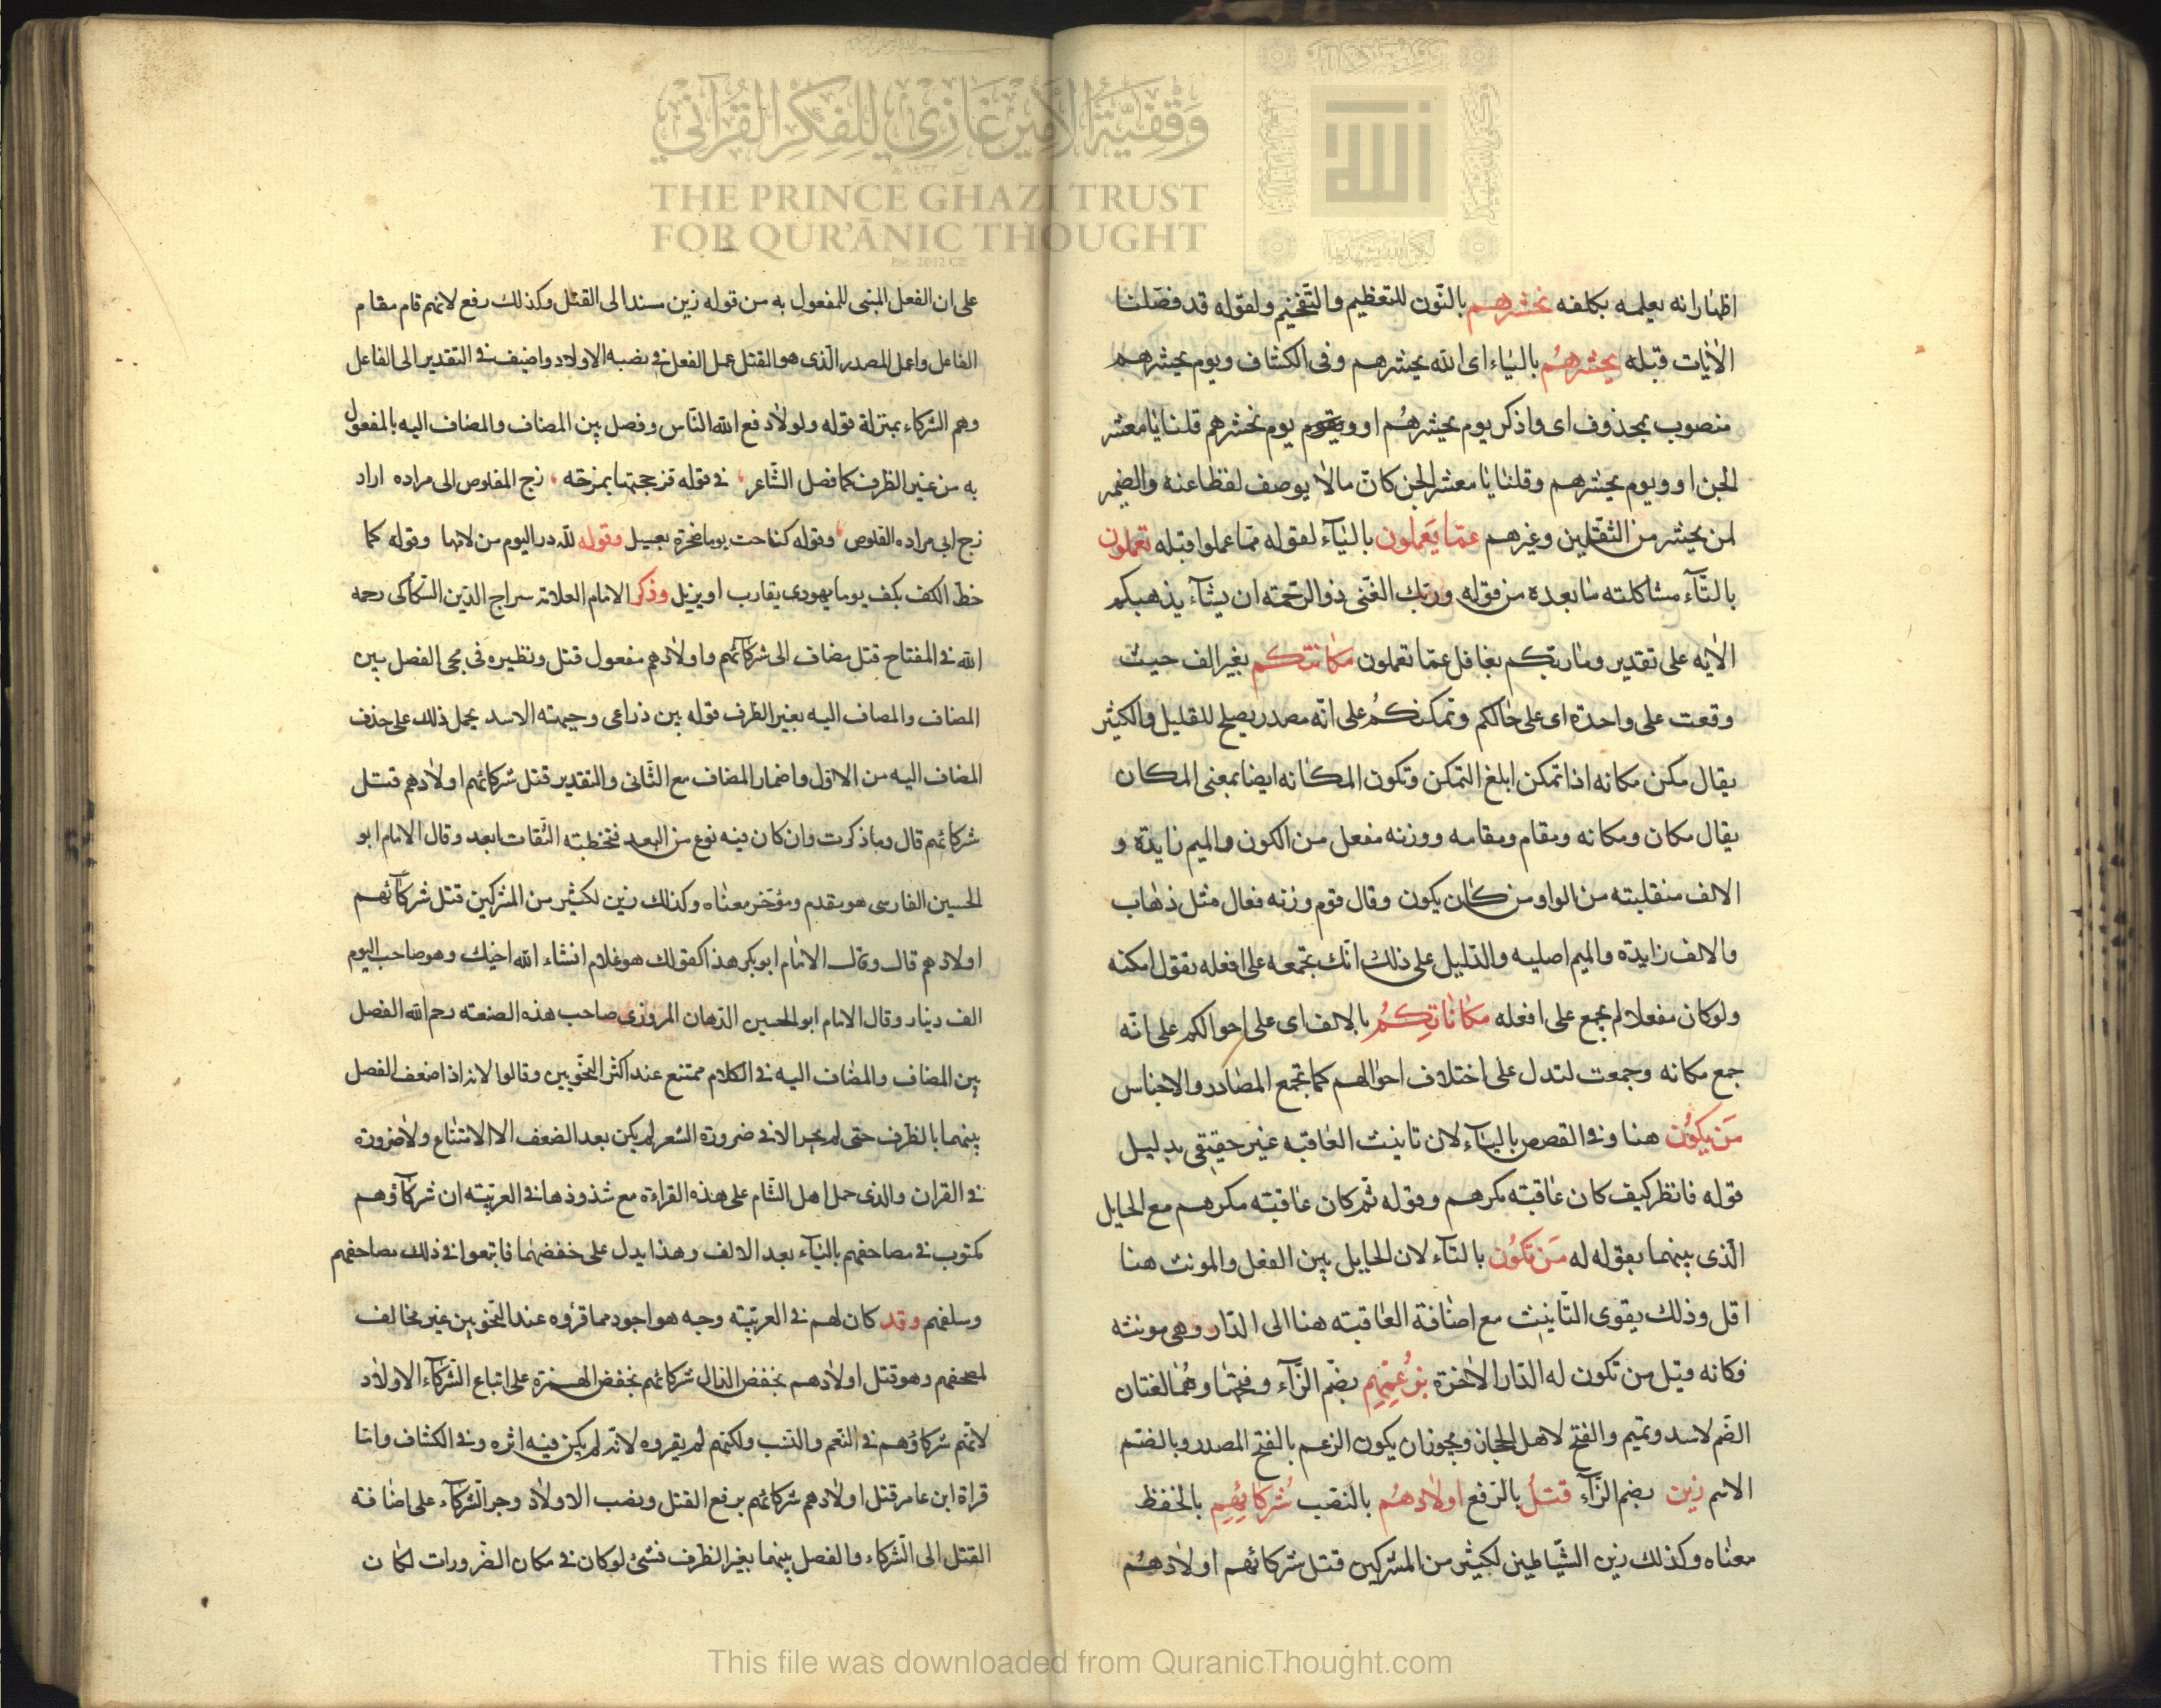 اظهارانه يعلمه بكلفه نحشرهم بالنّون للتعظيم والتّفخيم ولقوله قد فصّلنا
الاٰيات قبله يحشرهُم بالياء اى الله يحشرهم وفى الكشاف ويوم يحشرهم
منصوب بمحذوف اى واذكر يوم يحشرهُم او ويقوم يوم نحشرهم قلنا يا معشر
الجن او ويوم يحشرهم وقلنا يا معشر الجن كان مالا يوصف لفظاعنه والضمير
لمن يحشر من الثّقلين وغيرهم عمّا يَعملون باليآء لقوله ممّا عملوا قبله تعملون
بالتّآء مشاكلته ما بعده من قوله وربّك الغنى ذوالرّحمته ان يشآء يذهبكم
الاٰيه على تقدير وما ربّكم بغافل عمّا تعملون مكانتكم بغير الف حيث
وقعت على واحدة اى على حالكم وتمكنكُم على انّه مصدر يصلح للقليل والكثير
يقال مكن مكانه اذا تمكن ابلغ التمكن وتكون المكانه ايضا بمعنى المكان
يقال مكان ومكانه ومقام ومقامه ووزنه مفعل من الكون والميم زايدة و
الالف منقلبته من الواو من كان يكون وقال قوم وزنه فعال مثل ذهاب
والالف زايدة والميم اصليه والدّليل على ذلك انّك تجمعه على افعله تقول امكنه
ولوكان مفعلا لم يجمع على افعله مكاناتِكُم بالالف اى على احوالكم على انّه
جمع مكانه وجمعت لتدل على اختلاف احوالهم كما تجمع المصادر والاجناس
مَن يكُون هنا وفى القصص باليآء لان تانيث العاقبه غير حقيقى بدليل
قوله فانظر كيف كان عاقبته مكرهم وقوله ثم كان عاقبته مكرهم مع الحايل
الّذى بينهما بقوله له مَن تكُون بالتآء لان الحايل بين الفعل والمونث هنا
اقل وذلك يقوى التّانيث مع اضافة العاقبته هنا الى الدّار وهى مونثه
فكانه قيل من تكون له الدّار الاٰخرة بزُعمِهِم بضّم الزّآء وفتحها وهُما لغتان
الضّم لاسد وتميم والفتح لاهل الحجاز ويجوزان يكون الزعم بالفتح المصدر وبالضّم
الاسم زين بضم الزّآء قتلُ بالرّفع اولادهُم بالنّصب شُركائِهِم بالخفظ
معناه وكذلك زين الشّياطين لكثير من المشركين قتل شركائهم اولادهُم
على ان الفعل المبنى للمفعول به من قوله زين مسندا الى القتل وكذلك رفع لانهم قام مقام
الفاعل واعمل المصدر الّذى هو القتل عمل الفعل فى نصبه الاولاد واضيف فى التقدير الى الفاعل
وهم الشركاء بمنزلة قوله ولولا دفع الله النّاس وفصل بين المضاف والمضاف اليه بالمفعول
به من غير الظرف كما فصل الشّاعر فى قوله فزججتها بمزجّه زج القلوص الى مراده اراد
زج ابى مراده القلوص وقوله كناحت يوما صخرة بعسيل وقوله لله در اليوم من لامها وقوله كما
خطّ الكف بكف يوما يهودى يقارب اويزيل وذكر الامام العلامه سراج الدّين السّكاكى رحمه
الله فى المفتاح قتل مضاف الى شركآئهم واولادهم مفعول قتل ونظيره فى مجى الفصل بين
المضاف والمضاف اليه بغير الظرف قوله بين ذراعى وجبهته الاسد يحمل ذلك على حذف
المضاف اليه من الاوّل واضمار المضاف مع الثّانى والتقدير قتل شركائهم اولادهم قتل
شركائهم قال وما ذكرت وان كان فيه نوع من البعد فتخطئة الثّقات ابعد وقال الامام ابو
الحسين الفارسى هو مقدم ومؤخر معناه وكذلك زين لكثير من المشركين قتل شركآئهم
اولادهم قال وقال الامام ابوبكر هذا كقولك هو غلام انشاء الله اخيك وهو صاحب اليوم
الف دينار وقال الامام ابو الحسين الدّهان المروزى صاحب هذه الصنعته رحم الله الفصل
بين المضاف والمضاف اليه فى الكلام ممتنع عند اكثر النّحويين وقالوا لانه اذا ضعف الفصل
بينهما بالظرف حتى لم يجز الا فى ضرورة الشعر لم يكن بعد الضعف الا الامتناع ولا ضرورة
فى القران والذى حمل اهل الشام على هذه القراءة مع شذوذها فى العربيّته ان شركآؤهم
مكتوب فى مصاحفهم باليآء بعد الالف وهذا يدل على خفضها فاتبعوا فى ذلك مصاحفهم
وسلفهم وقد كان لهم فى العربيّته وجه هو اجود مما قرؤه عند النّحويين غير مخالف
لمصحفهم وهو قتل اولادهم بخفض الدال شركائهم بخفض الهمزة على اتباع الشركآء الاولاد
لانّهم شركاؤهم فى النّعم والنسب ولكنهم لم يقروه لانّه لم يكن فيه اثره وفى الكشاف واما
قراة ابن عامر قتل اولادهم شركائهم برفع القتل ونصب الاولاد وجر الشركآء على اضافته
القتل الى الشركاء والفصل بينهما بغير الظرف فشئ لوكان فى مكان الضّرورات لكان
وقفية الأمير غازي للفكر القرآني
THE PRINCE GHAZI TRUST
FOR QUR'ĀNIC THOUGHT
Est. 2012 CE
This file was downloaded from QuranicThought.com